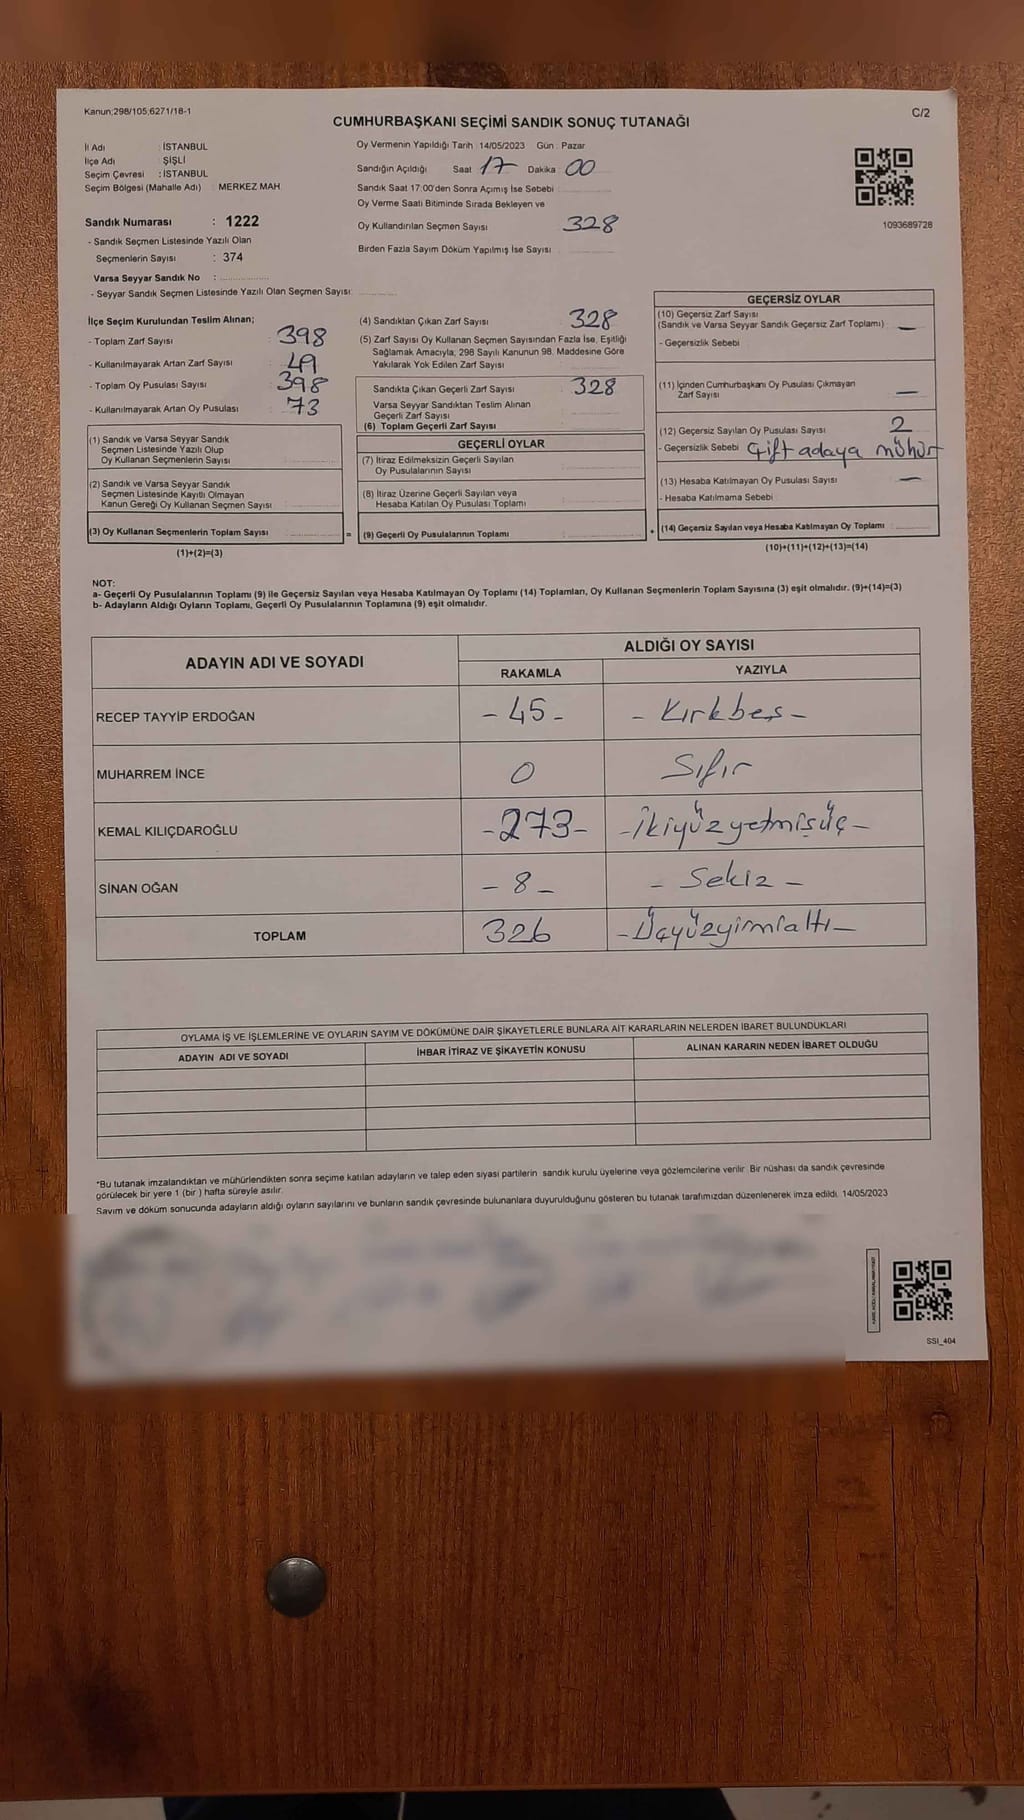 Kanun;298/105;6271/18-1
C/2
CUMHURBAŞKANI SEÇİMİ SANDIK SONUÇ TUTANAĞI
İl Adı : İSTANBUL
İlçe Adı : ŞİŞLİ
Seçim Çevresi : İSTANBUL
Seçim Bölgesi (Mahalle Adı) : MERKEZ MAH
Sandık Numarası : 1222
- Sandık Seçmen Listesinde Yazılı Olan
Seçmenlerin Sayısı : 374
Varsa Seyyar Sandık No :
- Seyyar Sandık Seçmen Listesinde Yazılı Olan Seçmen Sayısı:
Oy Vermenin Yapıldığı Tarih : 14/05/2023 Gün : Pazar
Sandığın Açıldığı Saat 17 Dakika 00
Sandık Saat 17:00'den Sonra Açımış İse Sebebi :
Oy Verme Saati Bitiminde Sırada Bekleyen ve
Oy Kullandırılan Seçmen Sayısı 328
Birden Fazla Sayım Döküm Yapılmış İse Sayısı
1093689728
İlçe Seçim Kurulundan Teslim Alınan;
- Toplam Zarf Sayısı 398
- Kullanılmayarak Artan Zarf Sayısı
- Toplam Oy Pusulası Sayısı 398
- Kullanılmayarak Artan Oy Pusulası 73
(1) Sandık ve Varsa Seyyar Sandık
Seçmen Listesinde Yazılı Olup
Oy Kullanan Seçmenlerin Sayısı
(2) Sandık ve Varsa Seyyar Sandık
Seçmen Listesinde Kayıtlı Olmayan
Kanun Gereği Oy Kullanan Seçmen Sayısı
(3) Oy Kullanan Seçmenlerin Toplam Sayısı
(1)+(2)=(3)
(4) Sandıktan Çıkan Zarf Sayısı 328
(5) Zarf Sayısı Oy Kullanan Seçmen Sayısından Fazla İse, Eşitliği
Sağlamak Amacıyla; 298 Sayılı Kanunun 98. Maddesine Göre
Yakılarak Yok Edilen Zarf Sayısı
Sandıkta Çıkan Geçerli Zarf Sayısı 328
Varsa Seyyar Sandıktan Teslim Alınan
Geçerli Zarf Sayısı
(6) Toplam Geçerli Zarf Sayısı
GEÇERLİ OYLAR
(7) İtiraz Edilmeksizin Geçerli Sayılan
Oy Pusulalarının Sayısı
(8) İtiraz Üzerine Geçerli Sayılan veya
Hesaba Katılan Oy Pusulası Toplamı
= (9) Geçerli Oy Pusulalarının Toplamı
GEÇERSİZ OYLAR
(10) Geçersiz Zarf Sayısı
(Sandık ve Varsa Seyyar Sandık Geçersiz Zarf Toplamı) —
- Geçersizlik Sebebi
(11) İçinden Cumhurbaşkanı Oy Pusulası Çıkmayan
Zarf Sayısı —
(12) Geçersiz Sayılan Oy Pusulası Sayısı 2
- Geçersizlik Sebebi Çift adaya mühür
(13) Hesaba Katılmayan Oy Pusulası Sayısı —
- Hesaba Katılmama Sebebi
+ (14) Geçersiz Sayılan veya Hesaba Katılmayan Oy Toplamı
(10)+(11)+(12)+(13)=(14)
NOT:
a- Geçerli Oy Pusulalarının Toplamı (9) ile Geçersiz Sayılan veya Hesaba Katılmayan Oy Toplamı (14) Toplamları, Oy Kullanan Seçmenlerin Toplam Sayısına (3) eşit olmalıdır. (9)+(14)=(3)
b- Adayların Aldığı Oyların Toplamı, Geçerli Oy Pusulalarının Toplamına (9) eşit olmalıdır.
ADAYIN ADI VE SOYADI
ALDIĞI OY SAYISI
RAKAMLA YAZIYLA
RECEP TAYYİP ERDOĞAN - 45 - - Kırkbeş -
MUHARREM İNCE 0 Sıfır
KEMAL KILIÇDAROĞLU -273- -İkiyüzyetmişüç-
SİNAN OĞAN - 8 - - Sekiz -
TOPLAM 326 -Üçyüzyirmialtı-
OYLAMA İŞ VE İŞLEMLERİNE VE OYLARIN SAYIM VE DÖKÜMÜNE DAİR ŞİKAYETLERLE BUNLARA AİT KARARLARIN NELERDEN İBARET BULUNDUKLARI
ADAYIN ADI VE SOYADI İHBAR İTİRAZ VE ŞİKAYETİN KONUSU ALINAN KARARIN NEDEN İBARET OLDUĞU
*Bu tutanak imzalandıktan ve mühürlendikten sonra seçime katılan adayların ve talep eden siyasi partilerin sandık kurulu üyelerine veya gözlemcilerine verilir. Bir nüshası da sandık çevresinde
görülecek bir yere 1 (bir ) hafta süreyle asılır.
Sayım ve döküm sonucunda adayların aldığı oyların sayılarını ve bunların sandık çevresinde bulunanlara duyurulduğunu gösteren bu tutanak tarafımızdan düzenlenerek imza edildi. 14/05/2023
SSI_404